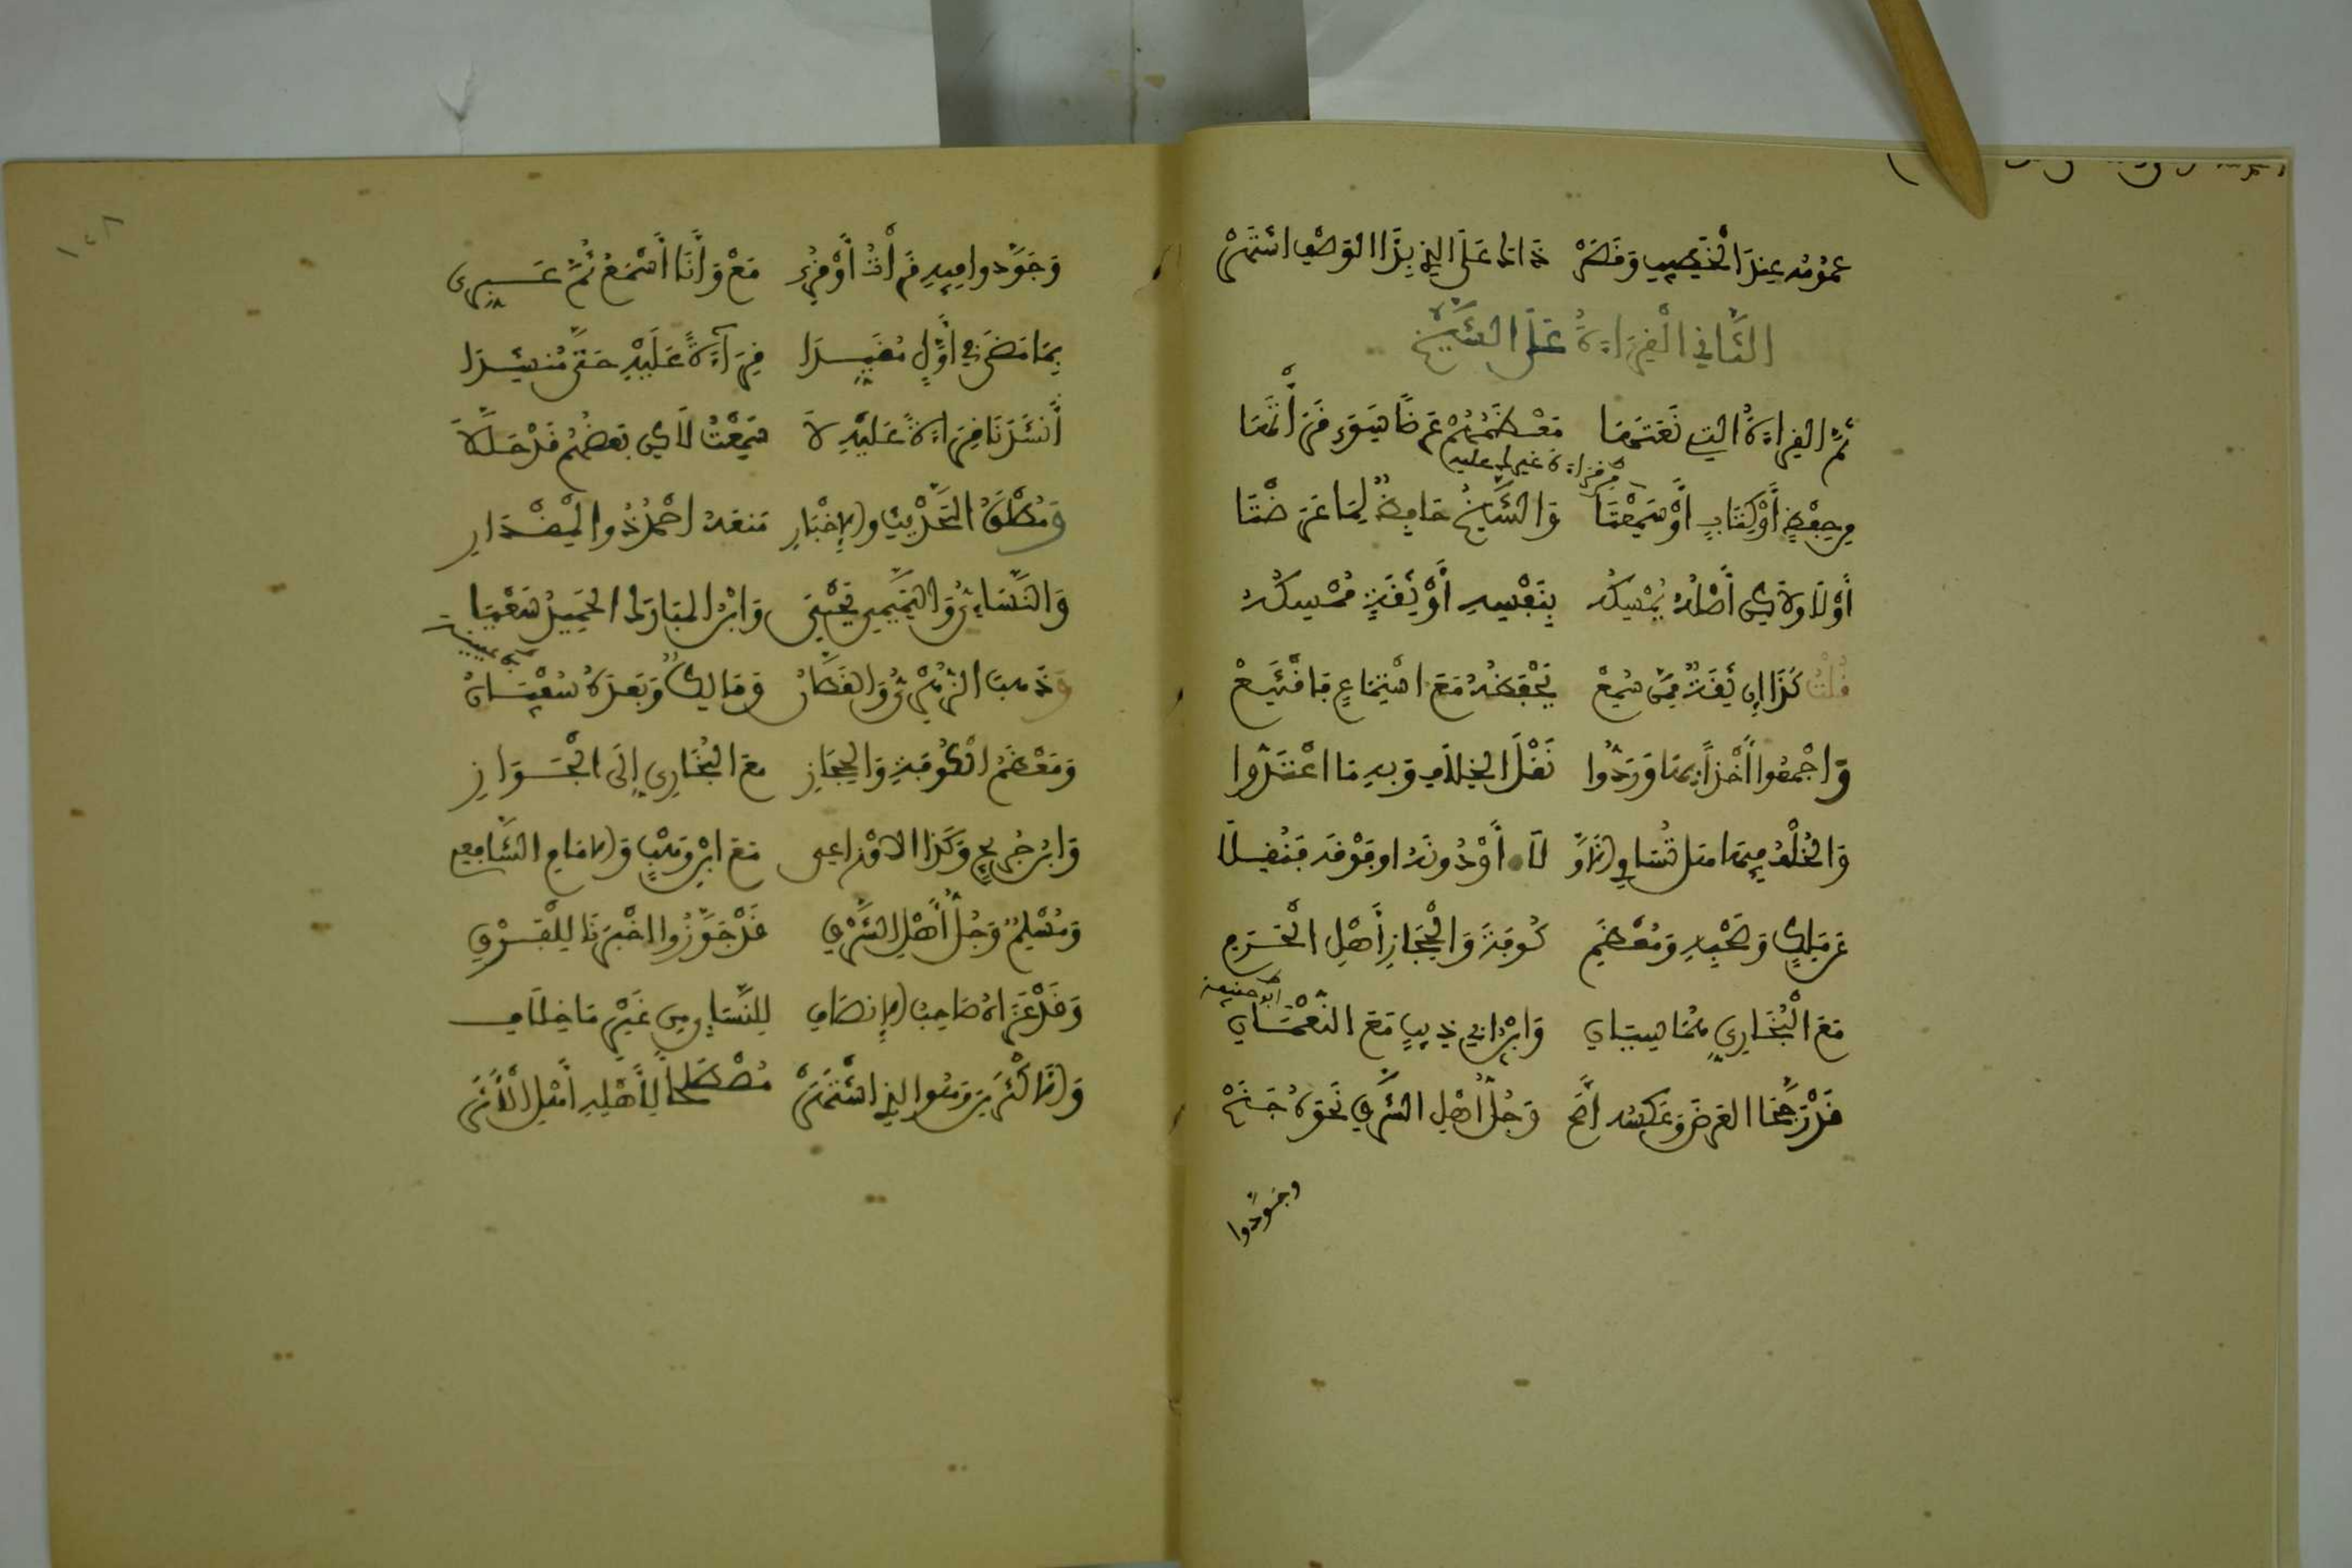 عُمُومُه عِندَ الْخَطِيبِ وَقَصَرْ ذَاكَ عَلَى الذِي بِذَا الوَصْفِ اشْتَهَرْ
الثَّانِي الْقِرَاءَةُ عَلَى الشَّيْخِ
ثُمَّ القِرَاءَةُ التِي نَعَتَهَا مُعْظَمُهُمْ عَرْضًا سَوَى قَرَأْتَهَا
من قراءة غيرك عليه
مِن حِفْظٍ أَوْ كِتَابٍ أَوْ سَمِعْتَا وَالشَّيْخُ حَافِظٌ لِمَا عَرَضْتَا
أَوْ لَا وَلَاكِن أَصْلُهُ يُمْسِكُه بِنَفْسِهِ أَوْ ثِقَةٌ مُمْسِكُهُ
قُلْتُ كَذَا إِن ثِقَةٌ مِمَّن سَمِعْ يَحْفَظُهُ مَعَ اسْتِمَاعٍ فَاقْتَنِعْ
وَأجْمَعُوا أَخْذًا بِهَا وَرَدُّوا نَقْلَ الخِلَافِ وَبِهِ مَا اعْتَدُّوا
وَالْخُلْفُ فِيهَا هَل تُسَاوِي الْأَوَّ لَا أَوْ دُونَهُ او فَوْقَه فَنُقِلَا
عَن مَالِكٍ وَصَحْبِهِ وَمُعْظَمِ كُوفَةَ وَالْحِجَازِ أَهْلِ الْحَرَمِ
مَعَ الْبُخَارِي هُمَا سِيَّانِ وَابْنُ ابِي ذِيبٍ مَعَ النُّعْمَانِ
أبو حنيفة
قَدْ رَجَّحَا العَرْضَ وَعَكْسُه أَصَحّ وَجُلُّ أَهْلِ الشَّرْقِ نَحْوَهُ جَنَحْ
وجَوَّدُوا
١٠٨
وَجَوَّدُوا فِيهِ قَرَأْتُ أَوْ قُرِي مَعْ وَأَنَا أَسْمَعُ ثُمَّ عَبِّرِي
بِمَا مَضَى فِي أَوَّلٍ مُقَيِّدَا قِرَآءَةً عَلَيْهِ حَتَّى مُنشِدَا
أَنشَدَنَا قِرَاءَةً عَلَيْهِ لَا سَمِعْتُ لَاكِن بَعضُهُم قَدْ حَلَّلَا
وَمُطْلَقُ التَّحْدِيثِ والإِخْبَارِ مَنَعَهُ احْمَدُ ذُو الْمِقْدَارِ
وَالنَّسَاءِيُّ وَالتَّمِيمِي يَحْيَى وَابْنُ المُبَارَكِ الحَمِيدُ سَعْيَا
وَذَهَبَ الزُّهْرِيُّ وَالقَطَّانُ وَمَالِكٌ وَبَعدَهُ سُفْيَانُ
بن عيينة
وَمُعْظَمُ الْكُوفَةِ وَالحِجَازِ مَعَ البُخَارِي إِلَى الْجَوَازِ
وَابْنُ جُرَيجٍ وَكَذَا الاوْزَاعِي مَعَ ابْنِ وَهْبٍ وَالإمَامِ الشَّافِعِي
وَمُسْلِمٌ وَجُلُّ أَهْلِ الشَّرْقِ قَدْ جَوَّزُوا اخْبَرَنَا لِلْفَرْقِ
وَقَدْ عَزَاهُ صَاحِبُ الإِنصَافِ لِلنَّسَاءِي مِن غَيْرِ مَا خِلَافِ
وَالأَكْثَرِينَ وَهُوَ الذِي اشْتَهَرْ مُصْطَلَحًا لِأَهْلِهِ أَهْلِ الْأَثَرْ